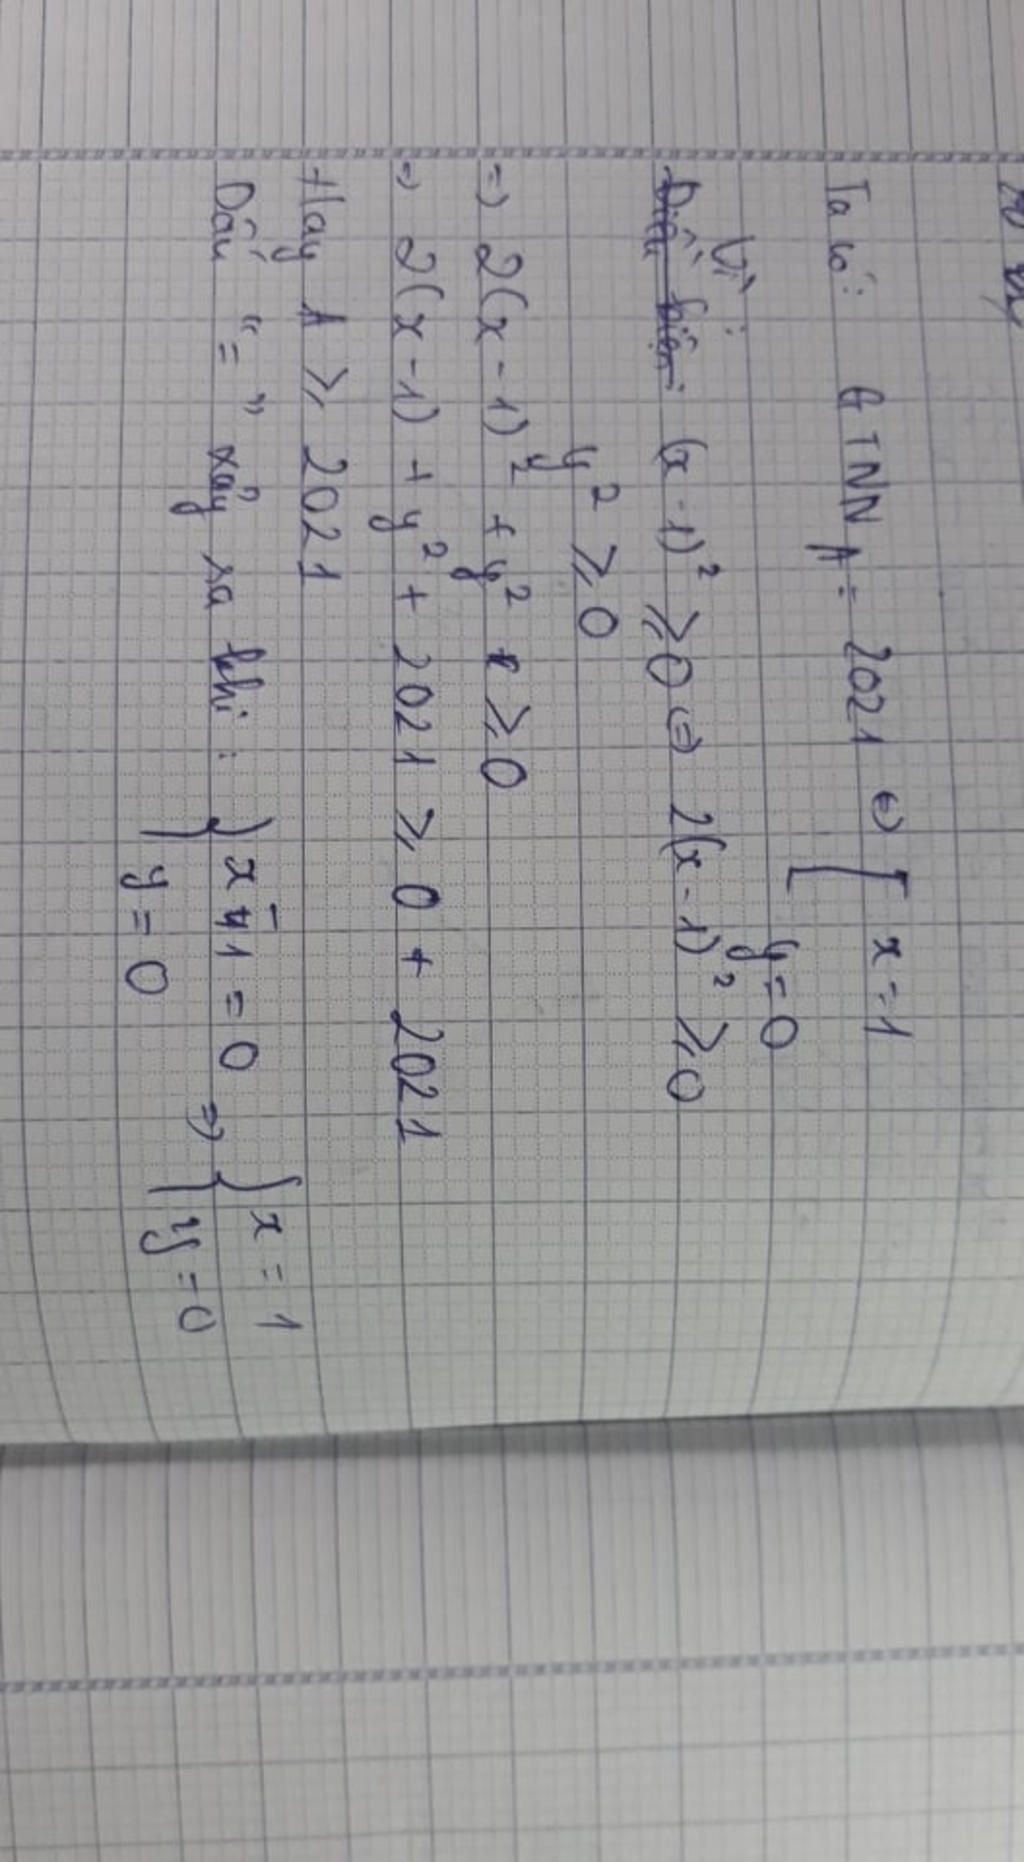 Ta có: GTNN A = 2021 <=> [ x = 1
y = 0
Vì:
Điều kiện: (x - 1)² ⩾ 0 => 2(x - 1)² ⩾ 0
y² ⩾ 0
=> 2(x - 1)² + y² ⩾ 0
=> 2(x - 1) + y² + 2021 ⩾ 0 + 2021
Hay A ⩾ 2021
Dấu "=" xảy ra khi: { x - 1 = 0 => { x = 1
y = 0 y = 0